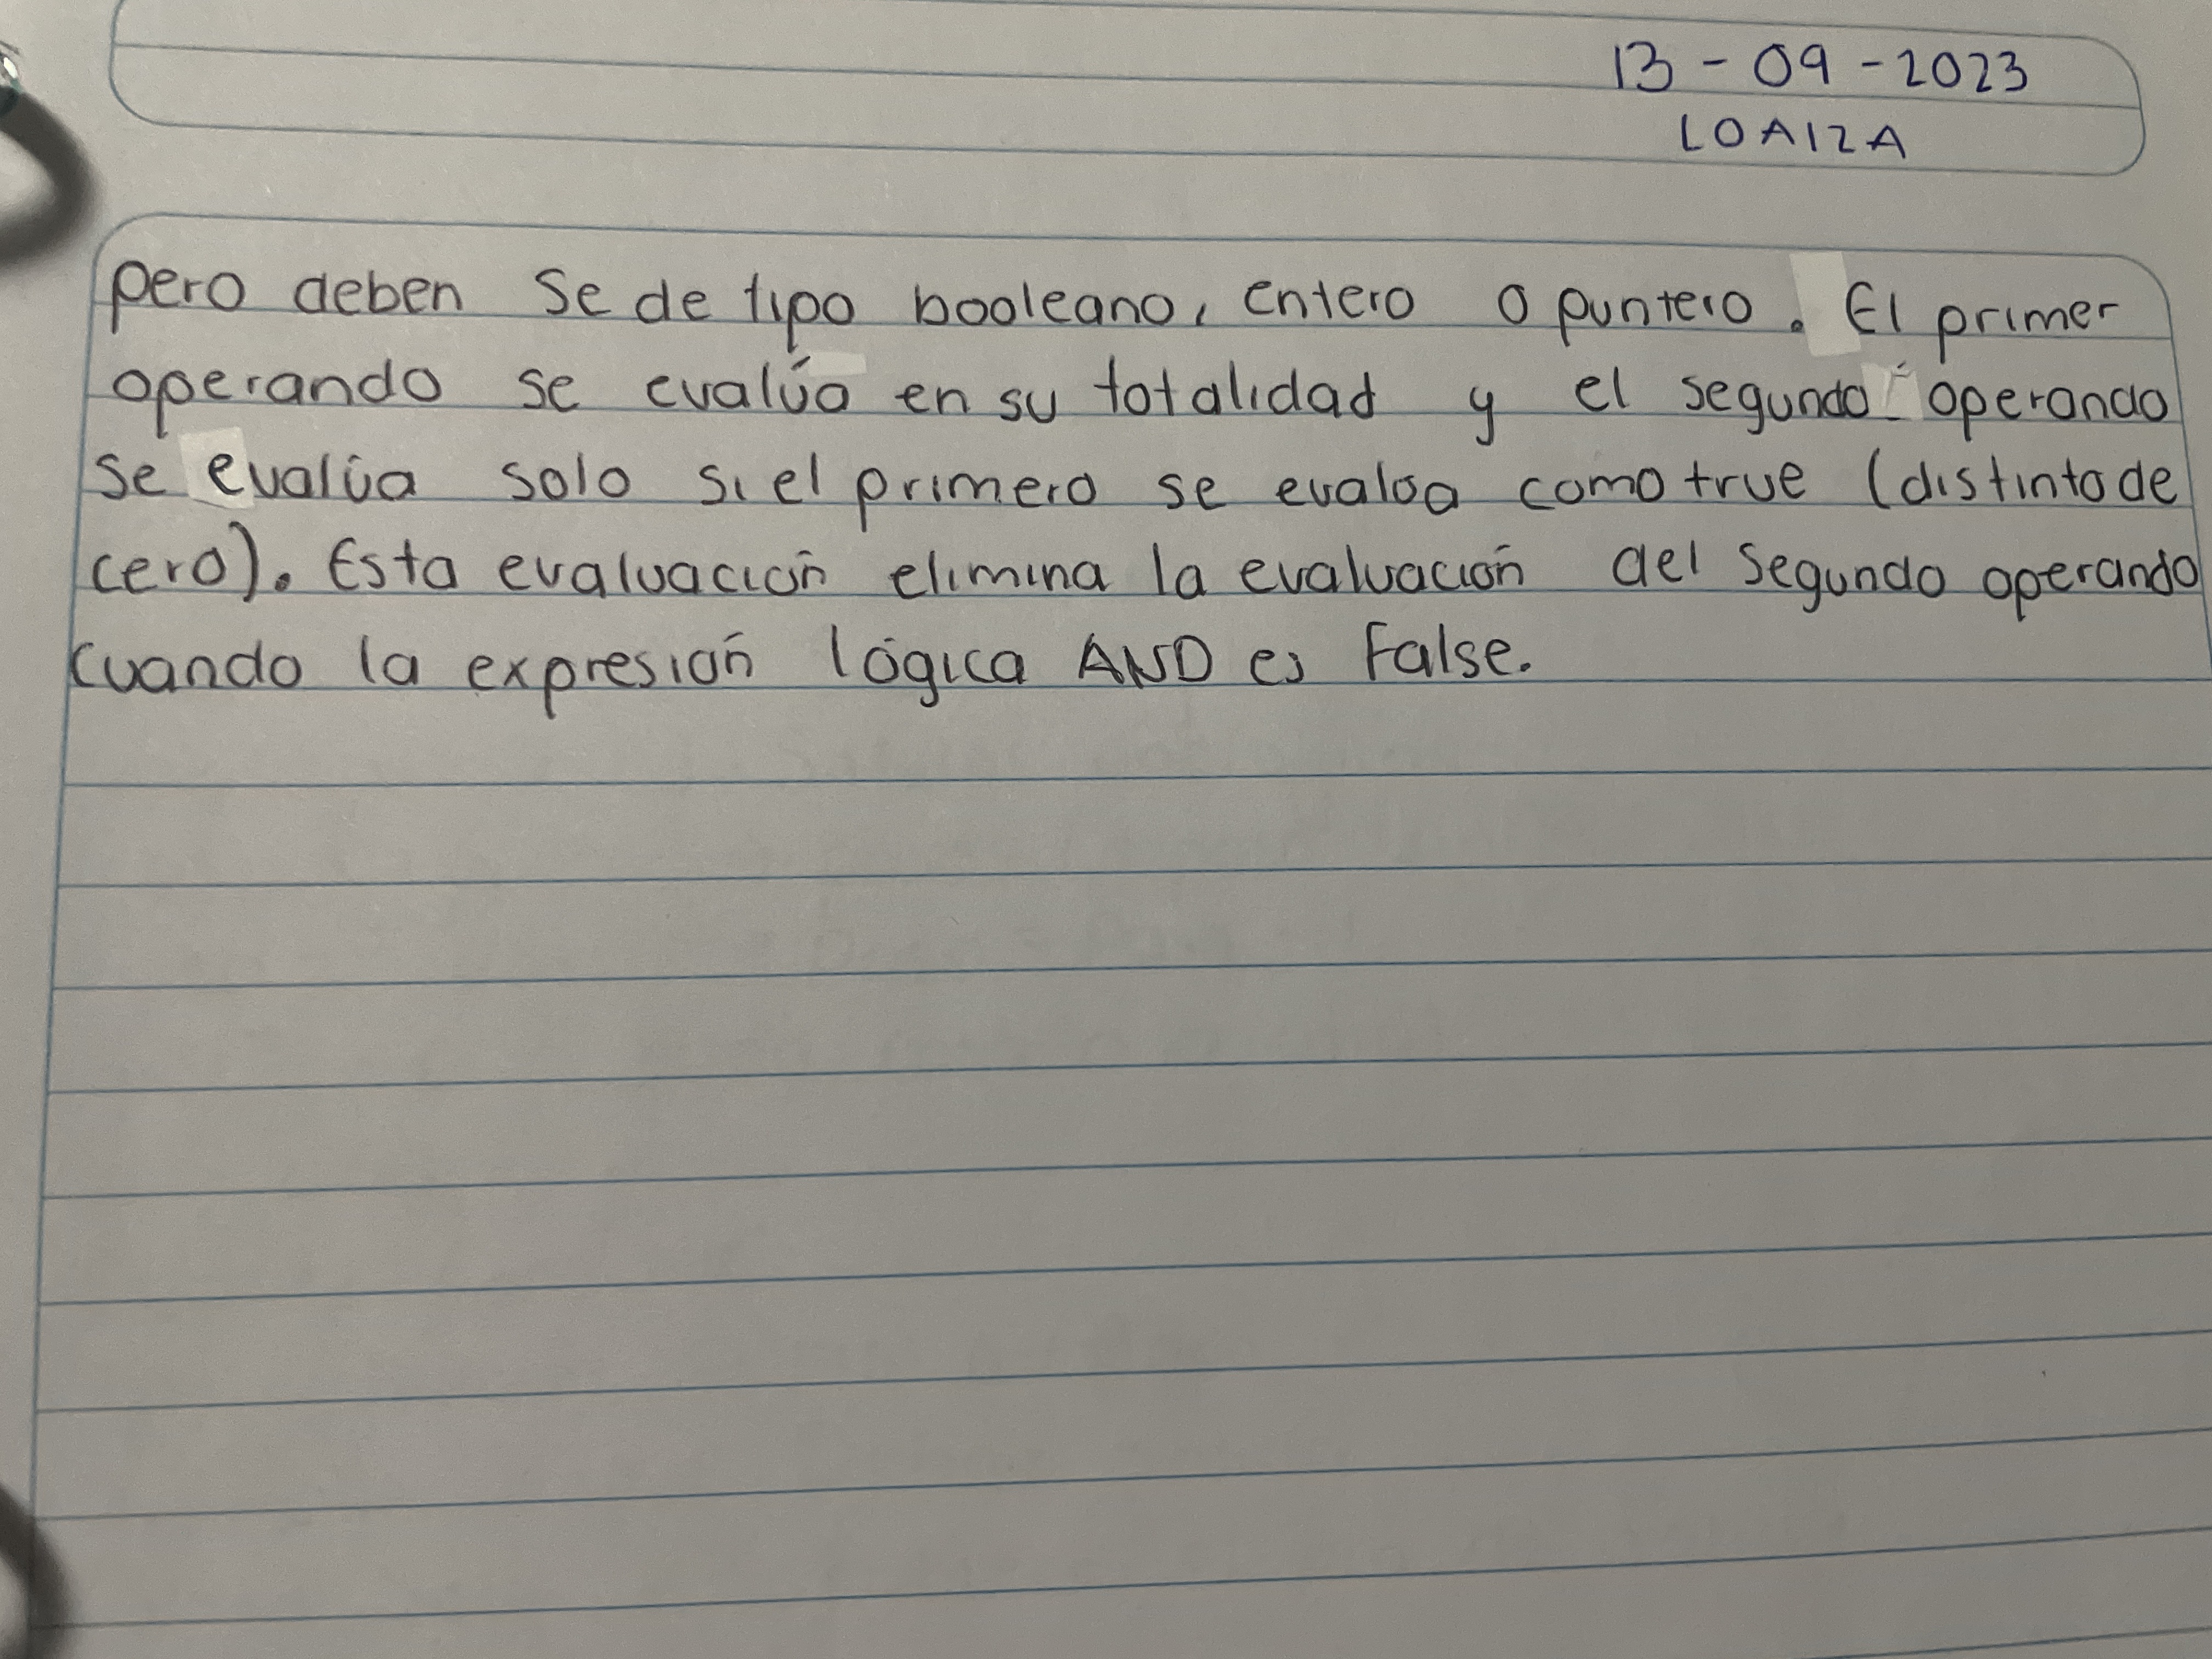 13 - 09 - 2023
LOAIZA
pero deben Se de tipo booleano, entero o puntero. El primer
operando se evalúa en su totalidad y el segundo operando
se evalúa solo si el primero se evaloa como true (distinto de
cero). Esta evaluación elimina la evaluación del segundo operando
cuando la expresión lógica AND es False.